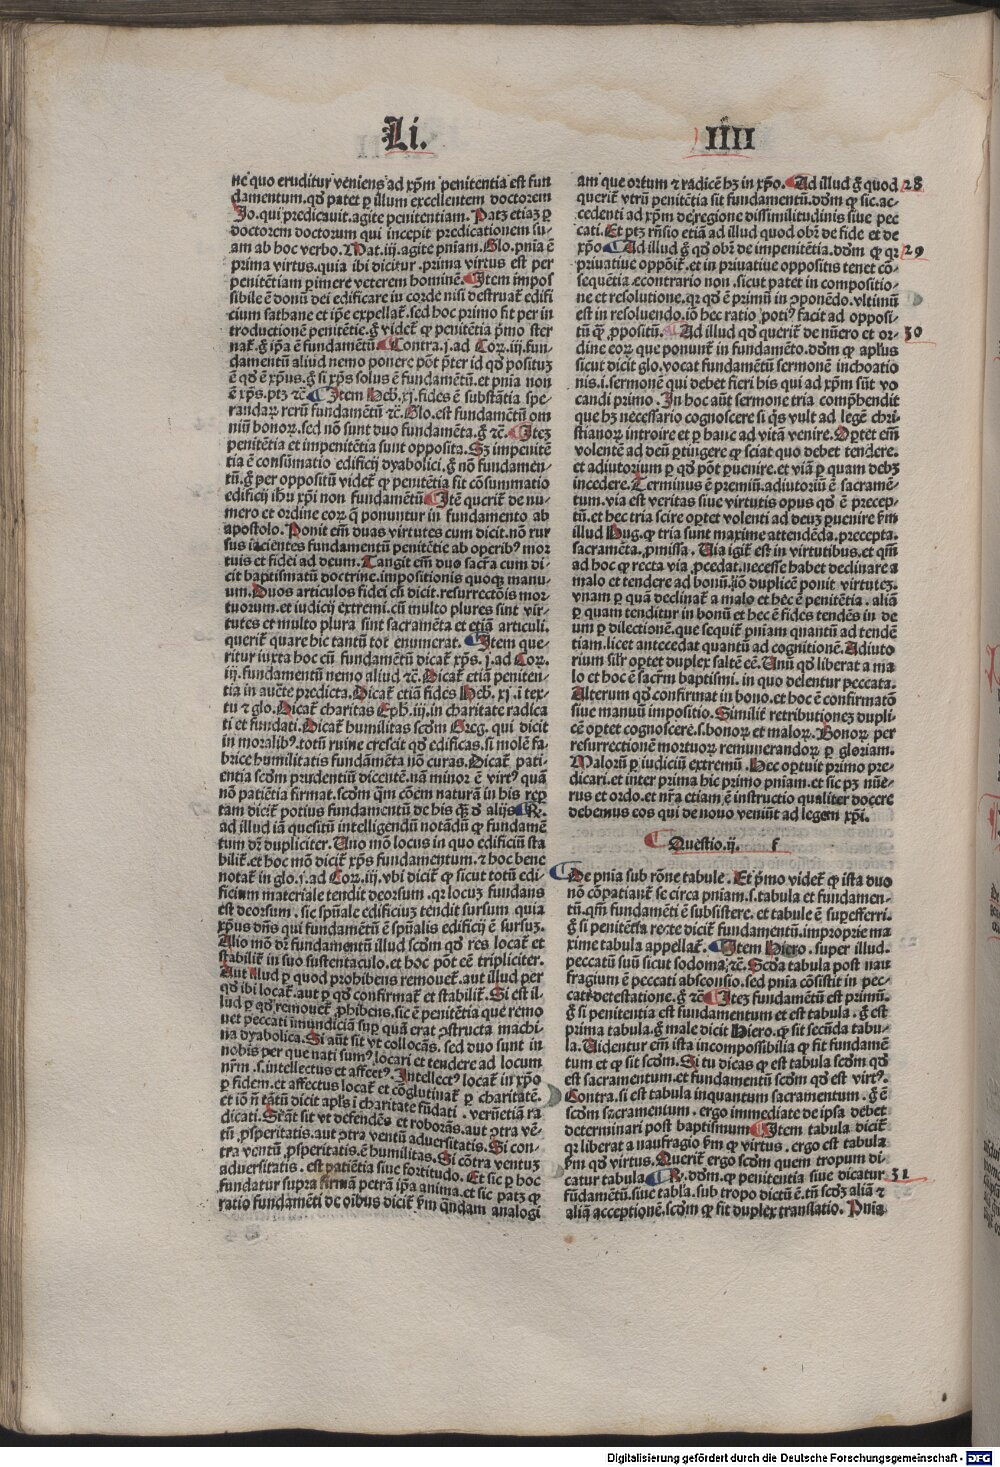 Li.
IIII
ne quo eruditur veniens ad xp̃m penitentia est fun
damentum. qđ patet ꝑ illum excellentem doctorem
Jo. qui predicauit. agite penitentiam. Patꝫ etiaꝫ ꝑ
doctorem doctorum qui incepit predicationem su-
am ab hoc verbo. Mat. iij. agite pñiam. Glo. pnĩa ẽ
prima virtus. quia ibi dicitur. prima virtus est per
penitẽtiam ꝑimere veterem hominẽ. Item impos
sibile ẽ donũ dei edificare iu corde nisi destruat̃ edifi
cium sathane et ip̃e expellat̃. sed hoc primo fit per in
troductionẽ penitẽtie. g̃ videt̃ ꝙ penitẽtia p̃mo ster
nat̃. g̃ ip̃a ẽ fundamẽtũ. Contra. j. ad Coꝝ. iij. fun-
damentũ aliud nemo ponere põt p̃ter id qđ posituꝫ
ẽ qđ ẽ xp̃us. g̃ si xp̃s solus ẽ fundamẽtũ. et pnia non
ẽ xp̃s. ptꝫ ⁊c̃. Item Heb. xj. fides ẽ substãtia spe-
randaꝝ rerũ fundamẽtũ ⁊c̃. Glo. est fundamẽtũ om
niũ bonoꝝ. sed nõ sunt duo fundamẽta. g̃ ⁊c̃. Iteꝫ
penitẽtia et impenitẽtia sunt opposita. Sꝫ impenitẽ
tia ẽ consũmatio edificij dyabolici. g̃ nõ fundamen-
tũ. g̃ per oppositũ videt̃ ꝙ penitẽtia sit cõsummatio
edificij ihũ xp̃i non fundamẽtũ. Itẽ querit̃ de nu-
mero et ordine eoꝝ q̃ ponuntur in fundamento ab
apostolo. Ponit em̃ duas virtutes cum dicit. nõ rur
sus iacientes fundamentũ penitẽtie ab operibꝰ mor
tuis et fidei ad deum. Tangit em̃ duo sacr̃a cum di-
cit baptismatũ doctrine. impositionis quoqꝫ manu-
um. Duos articulos fidei cũ dicit. resurrectõis mor-
tuorum. et iudicij extremi. cũ multo plures sint vir-
tutes et multo plura sint sacramẽta et etiã articuli.
querit̃ quare hic tantũ tot enumerat. Item que-
ritur iuxta hoc cũ fundamẽtũ dicat̃ xp̃s. j. ad Coꝝ.
iij. fundamentũ nemo aliud ⁊c̃. Dicat̃ etiã peniten-
tia in aucte predicta. Dicat̃ etiã fides Heb. xj. ĩ tex-
tu ⁊ glo. Dicat̃ charitas Eph. iij. in charitate radica
ti et fundati. Dicat̃ humilitas scđm Greg. qui dicit
in moralibꝰ. totũ ruine crescit qđ edificas. si molẽ fa-
brice humilitatis fundãmẽta nõ curas. Dicat̃ pati-
entia scđm prudentiũ dicentẽ. nã minor ẽ virtꝰ quã
nõ patiẽtia firmat. scđm q̃m cõem naturã in his rep
tam dicit̃ potius fundamentũ de his qꝫ̃ đ alijs. R̃.
ad illud iã quesitũ intelligendũ notãdũ ꝙ fundamẽ
tum dr̃ dupliciter. Uno mõ locus in quo edificiũ sta
bilit̃. et hoc mõ dicit̃ xp̃s fundamentum. ⁊ hoc bene
notat̃ in glo. j. ad Cor. iij. vbi dicit̃ ꝙ sicut totũ edi-
ficium materiale tendit deorsum. qꝛ locuꝫ fundans
est deorsum. sic spũale edificiuꝫ tendit sursum quia
xp̃us dñs qui fundamẽtũ ẽ spũalis edificij ẽ sursuꝫ.
Alio mõ dr̃ fundamentũ illud scđm qđ res locat̃ et
stabilit̃ in suo sustentaculo. et hoc põt cẽ tripliciter.
Aut illud ꝑ quod prohibens remouet̃. aut illud per
qđ ibi locat̃. aut ꝑ qđ confirmat̃ et stabilit̃. Si est il-
lud ꝑ qđ remouet̃ ꝓhibens. sic ẽ penitẽtia que remo
uet peccati ĩmundiciã suꝑ quã erat ꝯstructa machi-
na dyabolica. Si aũt sit vt collocãs. sed duo sunt in
nobis per que nati sumꝰ locari et tendere ad locum
nr̃m. s. intellectus et affectꝰ. Intellectꝰ locat̃ in xp̃o
ꝑ fidem. et affectus locat̃ et cõglutinat̃ ꝑ charitatẽ.
et iõ ñ tãtũ dicit apl̃s ĩ charitate fũdati. verũetiã ra
dicati. Si aũt sit vt defendẽs et roborãs. aut ꝯtra vẽ-
tũ ꝓsperitatis. aut ꝯtra ventũ aduersitatis. Si con-
tra ventũ ꝓsperitatis. ẽ humilitas. Si cõtra ventuꝫ
aduersitatis. est patiẽtia siue fortitudo. Et sic ꝑ hoc
fundatur supra firmã petrã ip̃a anima. et sic patꝫ ꝙ
ratio fundamẽti de oĩbus dicit̃ ẜm quãdam analogi
am que ortum ⁊ radicẽ hꝫ in xp̃o. Ad illud g̃ quod 28
querit̃ vtrũ penitẽtia sit fundamentũ. dđm ꝙ sic. ac-
cedenti ad xp̃m de regione dissimilitudinis siue pec
cati. Et ptꝫ rñsio etiã ad illud quod obr̃ de fide et de
xp̃o. Ad illud g̃ qđ obr̃ de impenitẽtia. dđm ꝙ qꝛ 29
priuatiue oppõit̃. et in priuatiue oppositis tenet cõ-
sequẽtia econtrario non. sicut patet in compositio-
ne et resolutione. qꝛ qđ ẽ primũ in ꝯponẽdo. vltimũ
est in resoluendo. iõ hec ratio potiꝰ facit ad opposi-
tũ q̃ ꝓpositũ. Ad illud qđ querit̃ de nũero et or- 30
dine eoꝝ que ponunt̃ in fundamẽto. dđm ꝙ apl̃us
sicut dicit glo. vocat fundamẽtũ sermonẽ inchoatio
nis. i. sermonẽ qui debet fieri his qui ad xp̃m sũt vo
candi primo. In hoc aũt sermone tria comp̃hendit
que hꝫ necessario cognoscere si q̃s vult ad legẽ chri-
stianoꝝ introire et ꝑ hanc ad vitã venire. Oꝑtet em̃
volentẽ ad deũ ꝑtingere ꝙ sciat quo debet tendere.
et adiutorium ꝑ qđ põt ꝑuenire. et viã ꝑ quam debꝫ
incedere. Terminus ẽ premiũ. adiutoriũ ẽ sacramẽ-
tum. via est veritas siue virtutis opus qđ ẽ precep-
tũ. et hec tria scire oꝑtet volenti ad deuꝫ ꝑuenire ẜm
illud Hug. ꝙ tria sunt maxime attendẽda. precepta.
sacramẽta. ꝓmissa. Uia igit̃ est in virtutibus. et qm̃
ad hoc ꝙ recta via ꝓcedat. necesse habet declinare a
malo et tendere ad bonũ. iõ duplicẽ ponit virtuteꝫ.
vnam ꝑ quã declinat̃ a malo et hec ẽ penitẽtia. aliã
ꝑ quam tenditur in bonũ et hec ẽ fides tendẽs in de
um ꝑ dilectionẽ. que sequit̃ pñiam quantũ ad tendẽ
tiam. licet antecedat quantũ ad cognitionẽ. Adiuto
rium silr̃ oꝑtet duplex saltẽ eẽ. Unũ qđ liberat a ma
lo et hoc ẽ sacr̃m baptismi. in quo delentur peccata.
Alterum qđ confirmat in bono. et hoc ẽ confirmatõ
siue manuũ impositio. Similit̃ retributioneꝫ dupli-
cẽ oꝑtet cognoscere. s. bonoꝝ et maloꝝ. Bonoꝝ per
resurrectionẽ mortuoꝝ remunerandoꝝ ꝑ gloriam.
Maloꝝ ꝑ iudiciũ extremũ. Hec oꝑtuit primo pre-
dicari. et inter prima hic primo pniam. et sic pꝫ nũe-
rus et ordo. et nr̃a etiam ẽ instructio qualiter docere
debemus eos qui de nouo veniũt ad legem xp̃i.
Questio. ij. f
De pnĩa sub rõne tabule. Et p̃mo videt̃ ꝙ ista duo
nõ cõpatiant̃ se circa pnĩam. s. tabula et fundamen-
tũ. qm̃ fundamẽti ẽ subsistere. et tabule ẽ suꝑefferri.
g̃ si penitẽtia recte dicit̃ fundamentũ. improprie ma
xime tabula appellat̃. Item Hiero. super illud.
peccatũ suũ sicut sodoma. ⁊c̃. Scđa tabula post nau
fragium ẽ peccati absconsio. sed pnĩa cõsistit in pec-
cati detestatione. g̃ ⁊c̃. Iteꝫ fundamẽtũ est primũ.
g̃ si penitentia est fundamentum et est tabula. g̃ est
prima tabula. g̃ male dicit Hiero. ꝙ sit secũda tabu-
la. Uidentur em̃ ista incompossibilia ꝙ sit fundamẽ
tum et ꝙ sit scđm. Si tu dicas ꝙ est tabula scđm qđ
est sacramentum. et fundamentũ scđm qđ est virtꝰ.
Contra. si est tabula inquantum sacramentum. g̃ ẽ
scđm sacramentum. ergo immediate de ipsa debet
determinari post baptismum. Item tabula dicit̃
qꝛ liberat a naufragio ẜm ꝙ virtus. ergo est tabula
ẜm qđ virtus. Querit̃ ergo scđm quem tropum di-
catur tabula. R̃. dđm. ꝙ penitentia siue dicatur 31
fũdamẽtũ. siue tabl̃a. sub tropo dictũ ẽ. tñ scđꝫ aliã ⁊
aliã acceptionẽ. scđm ꝙ fit duplex translatio. Pnia
Digitalisierung gefördert durch die Deutsche Forschungsgemeinschaft - DFG